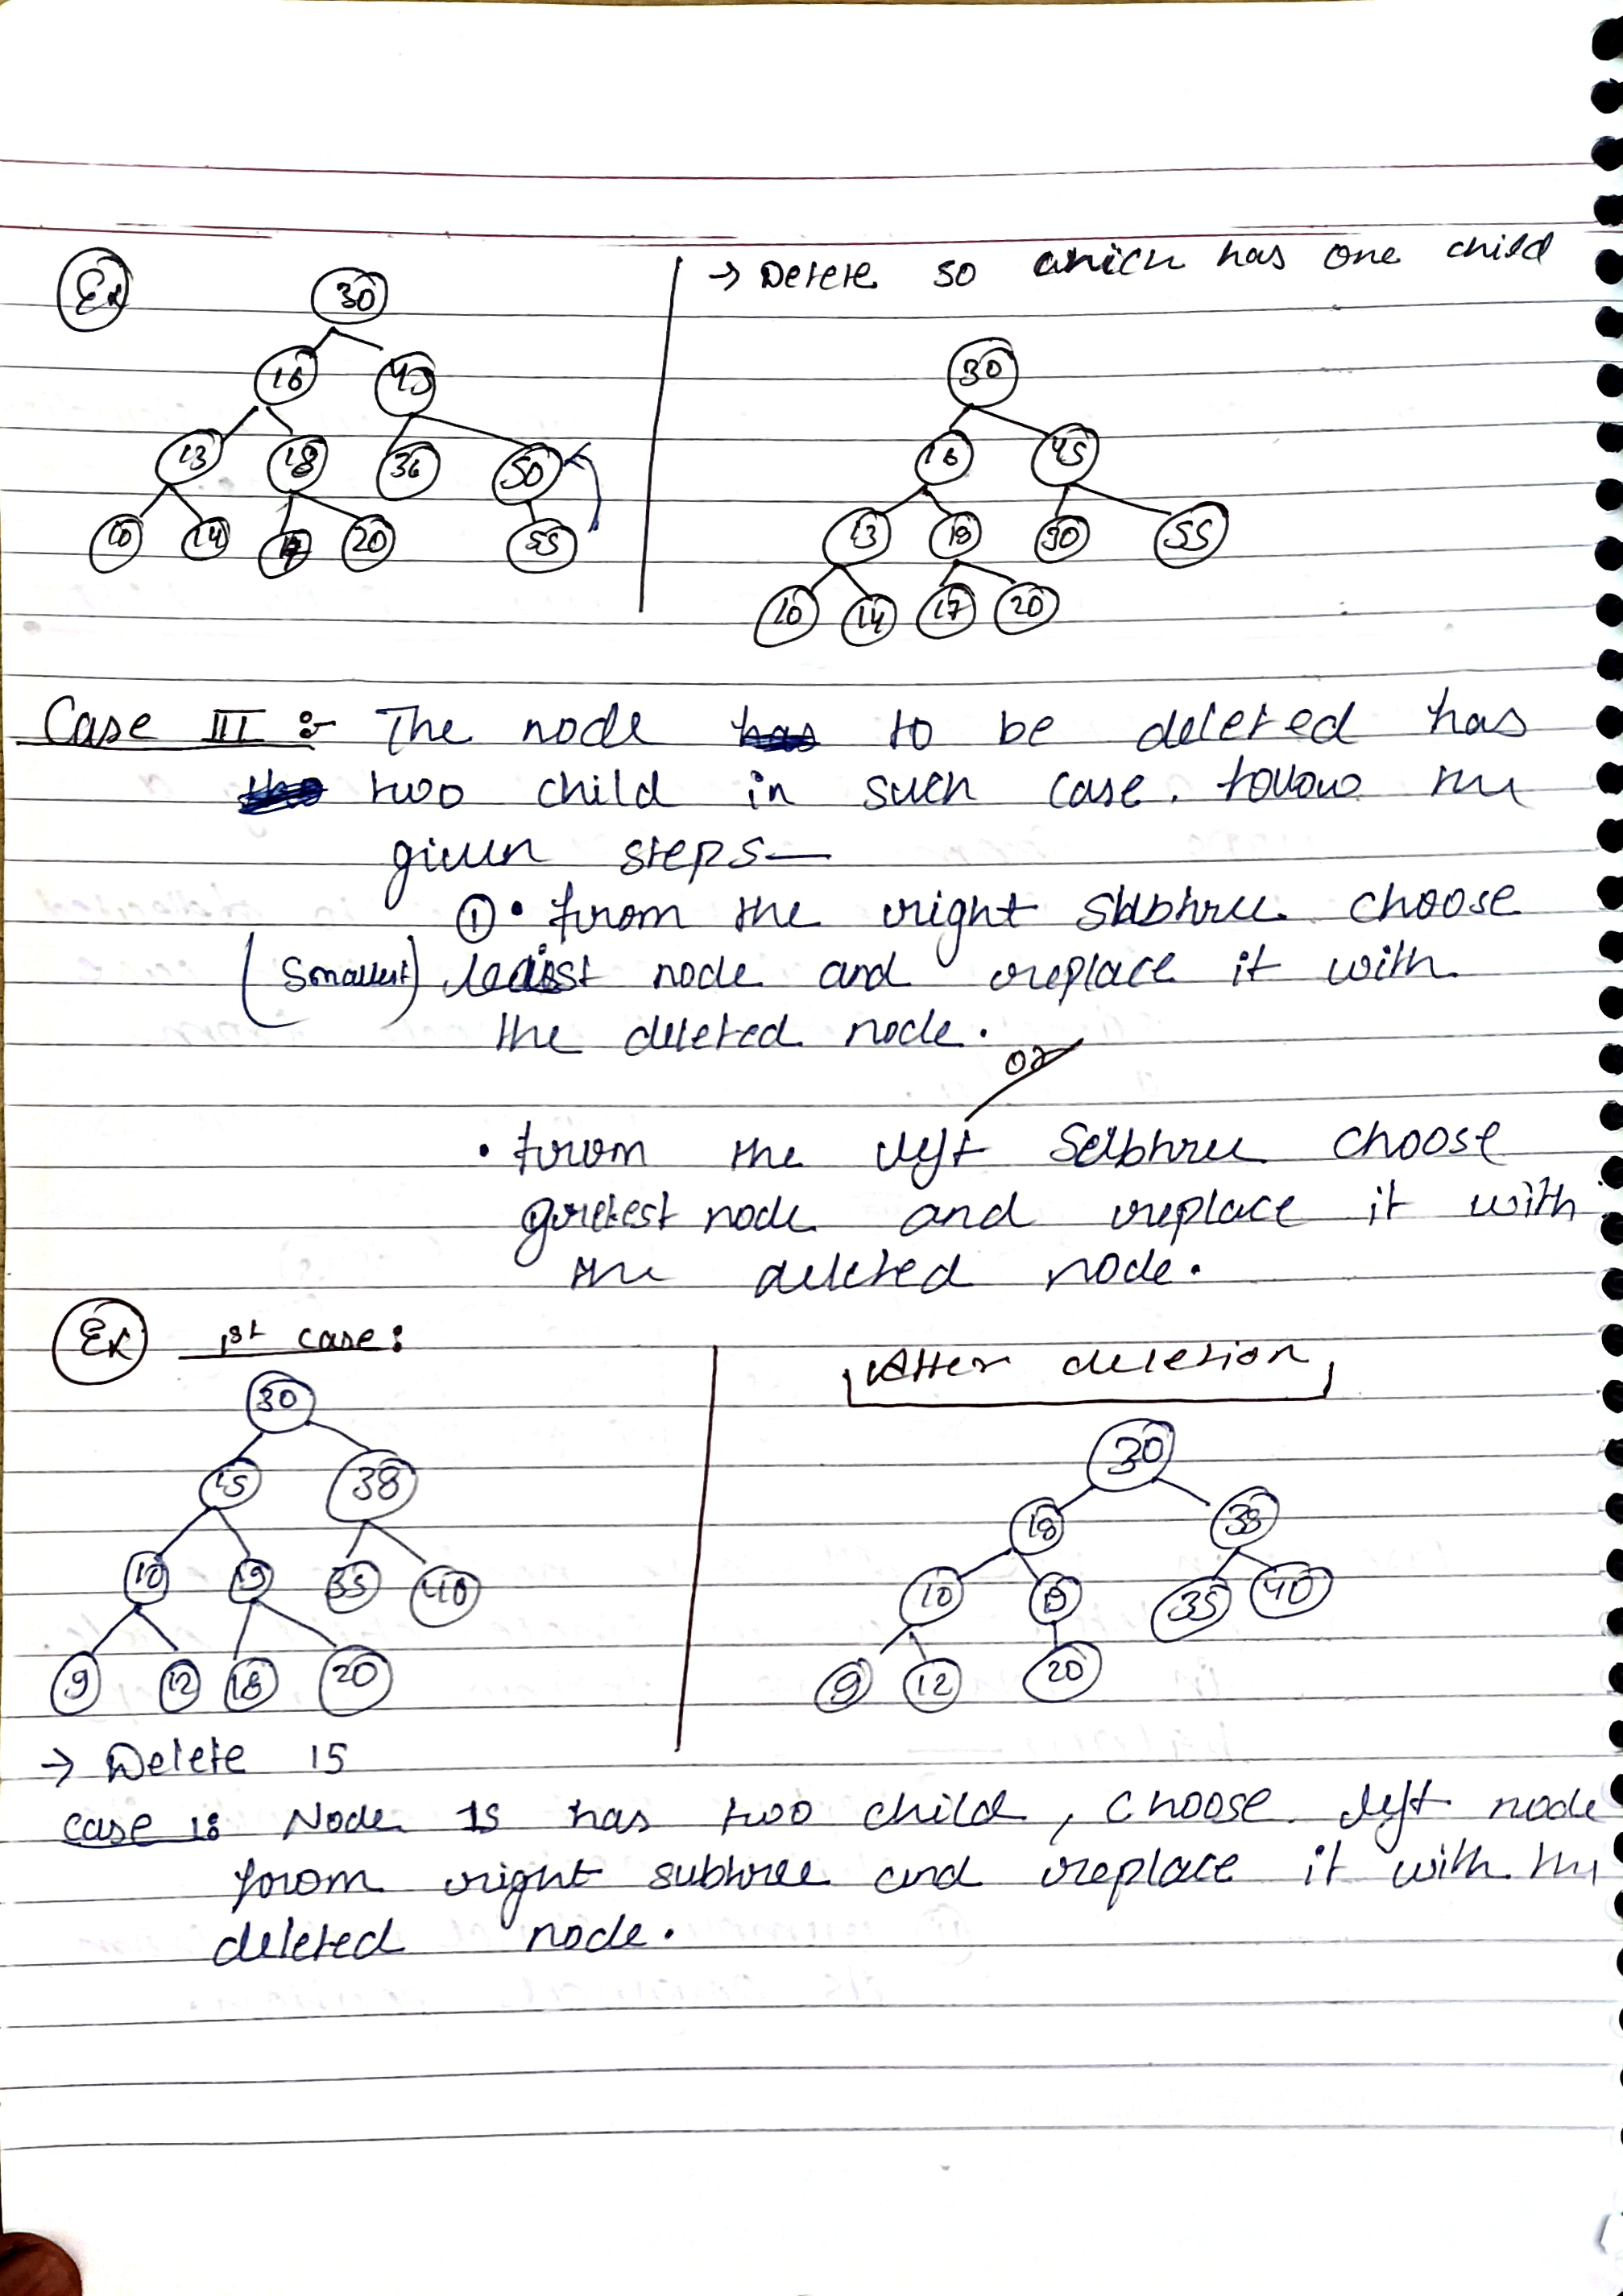 Ex
30
16 45
13 18 36 50
10 14 17 20 55
→ Delete 50 which has one child
30
16 45
13 18 30 55
10 14 17 20
Case III :- The node to be deleted has
two child in such case. follow the
given steps—
① • from the right subtree choose
(smallest) least node and replace it with
the deleted node.
or
• from the left subtree choose
gretest node and replace it with
the deleted node.
Ex 1st case:
30
15 38
10 19 35 40
9 12 18 20
→ Delete 15
After deletion
30
18 38
10 19 35 40
9 12 20
case 1: Node 15 has two child, choose left node
from right subtree and replace it with the
deleted node.